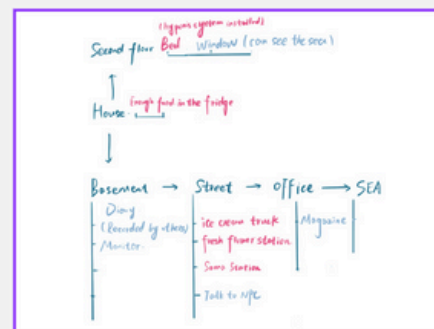 (hypnos system installed)
Second floor Bed Window (can see the sea)
House. Enough food in the fridge
Basement → Street → Office → SEA
Diary
(Recorded by others)
Monitor.
ice cream truck
fresh flower station
Same Station
Talk to NPC
Magazine